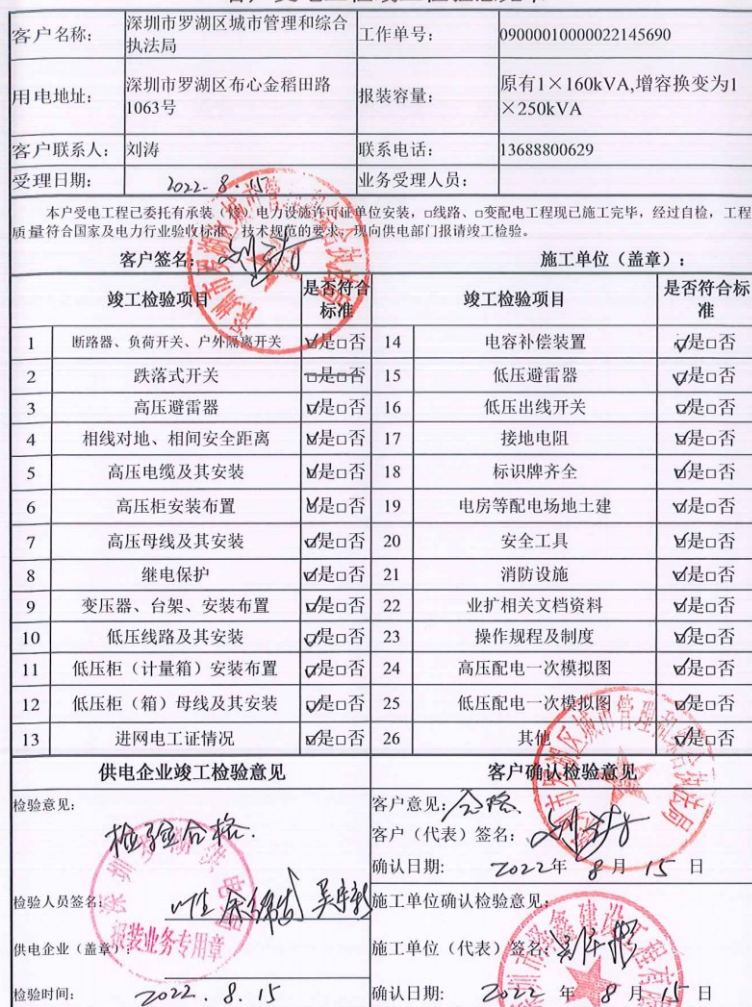 客户名称: 深圳市罗湖区城市管理和综合执法局 工作单号: 09000010000022145690
用电地址: 深圳市罗湖区布心金稻田路1063号 报装容量: 原有1×160kVA,增容换变为1×250kVA
客户联系人: 刘涛 联系电话: 13688800629
受理日期: 2022.8.15 业务受理人员:
本户受电工程已委托有承装（修）电力设施许可证单位安装，□线路、□变配电工程现已施工完毕，经过自检，工程
质量符合国家及电力行业验收标准、技术规范的要求，现向供电部门报请竣工检验。
客户签名: 施工单位（盖章）:
竣工检验项目 是否符合标准 竣工检验项目 是否符合标准
1 断路器、负荷开关、户外隔离开关 ☑是□否 14 电容补偿装置 ☑是□否
2 跌落式开关 □是□否 15 低压避雷器 ☑是□否
3 高压避雷器 ☑是□否 16 低压出线开关 ☑是□否
4 相线对地、相间安全距离 ☑是□否 17 接地电阻 ☑是□否
5 高压电缆及其安装 ☑是□否 18 标识牌齐全 ☑是□否
6 高压柜安装布置 ☑是□否 19 电房等配电场地土建 ☑是□否
7 高压母线及其安装 ☑是□否 20 安全工具 ☑是□否
8 继电保护 ☑是□否 21 消防设施 ☑是□否
9 变压器、台架、安装布置 ☑是□否 22 业扩相关文档资料 ☑是□否
10 低压线路及其安装 ☑是□否 23 操作规程及制度 ☑是□否
11 低压柜（计量箱）安装布置 ☑是□否 24 高压配电一次模拟图 ☑是□否
12 低压柜（箱）母线及其安装 ☑是□否 25 低压配电一次模拟图 ☑是□否
13 进网电工证情况 ☑是□否 26 其他 ☑是□否
供电企业竣工检验意见 客户确认检验意见
检验意见: 检验合格. 客户意见: 合格
客户（代表）签名:
确认日期: 2022年 8月 15日
检验人员签名: 施工单位确认检验意见:
供电企业（盖章）: 施工单位（代表）签名:
检验时间: 2022.8.15 确认日期: 2022年 8月 15日
深圳市罗湖区城市管理和综合执法局
报装业务专用章